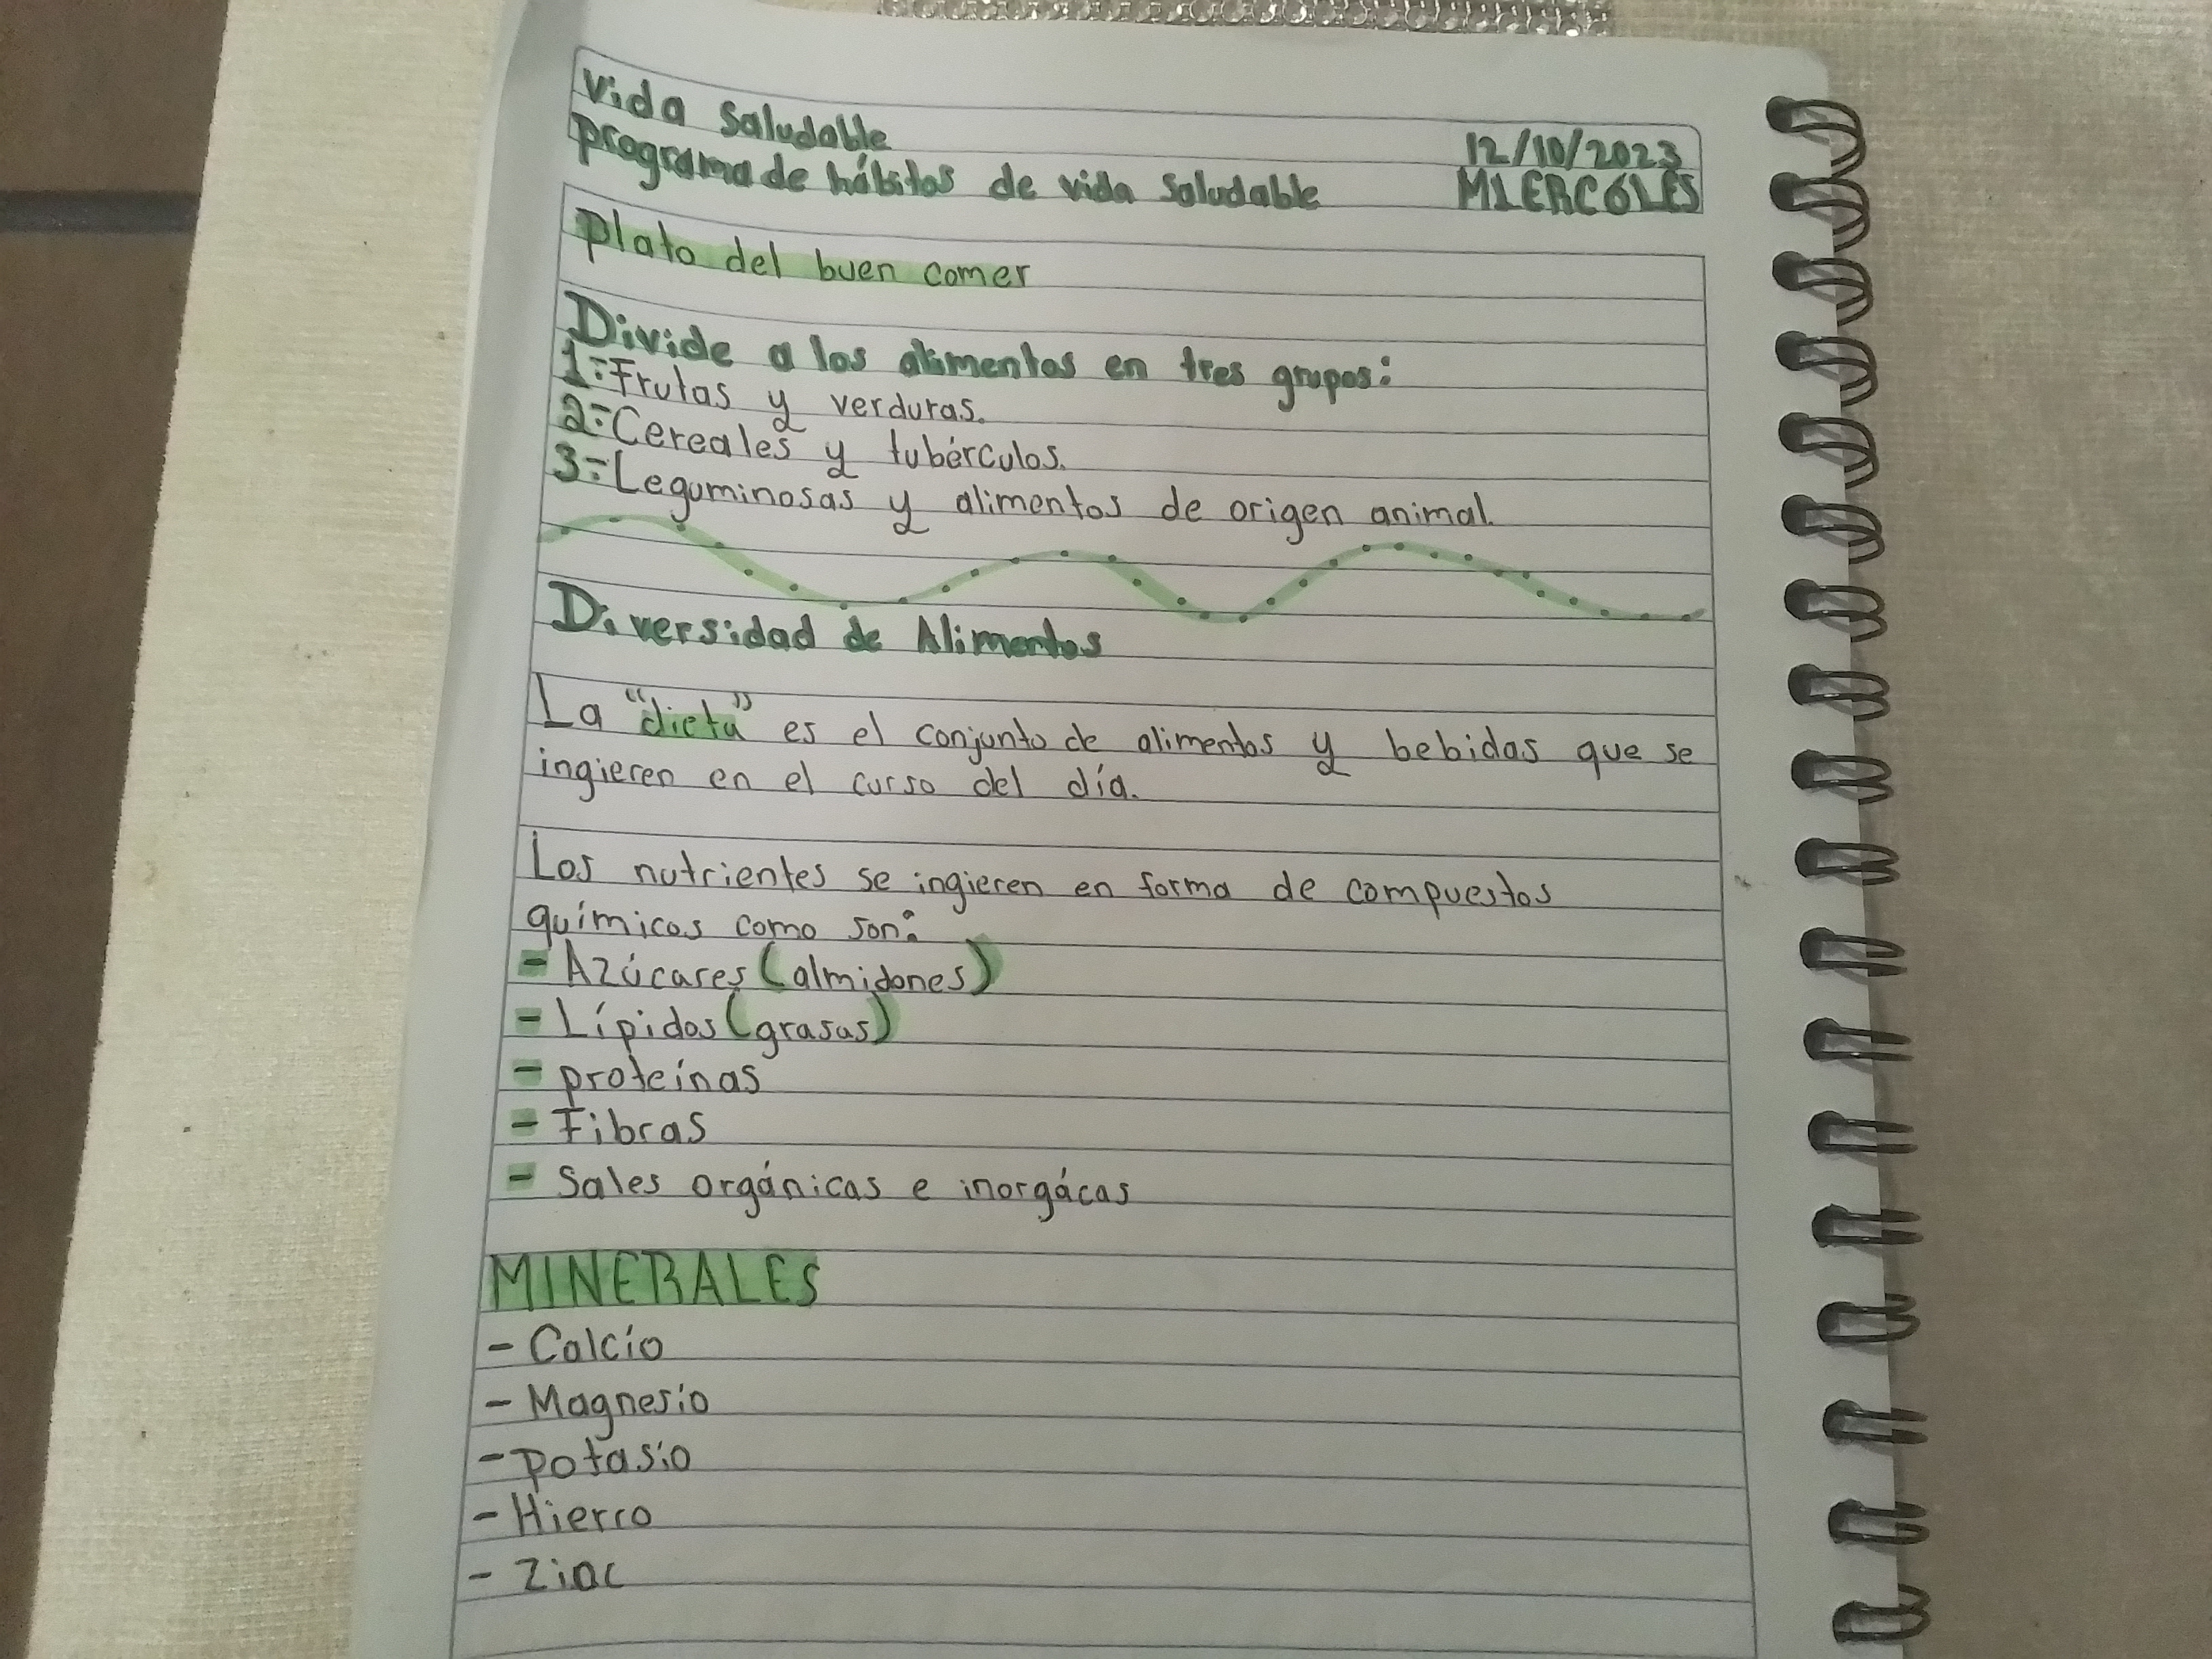 Vida Saludable
programa de hábitos de vida saludable
12/10/2023
MIERCOLES
plato del buen comer
Divide a los alimentos en tres grupos:
1-Frutas y verduras.
2-Cereales y tubérculos.
3-Leguminosas y alimentos de origen animal.
Diversidad de Alimentos
La "dieta" es el conjunto de alimentos y bebidas que se
ingieren en el curso del día.
Los nutrientes se ingieren en forma de compuestos
químicos como son:
- Azúcares (almidones)
- Lípidos (grasas)
- proteínas
- Fibras
- Sales orgánicas e inorgácas
MINERALES
- Calcio
- Magnesio
- potasio
- Hierro
- Zinc